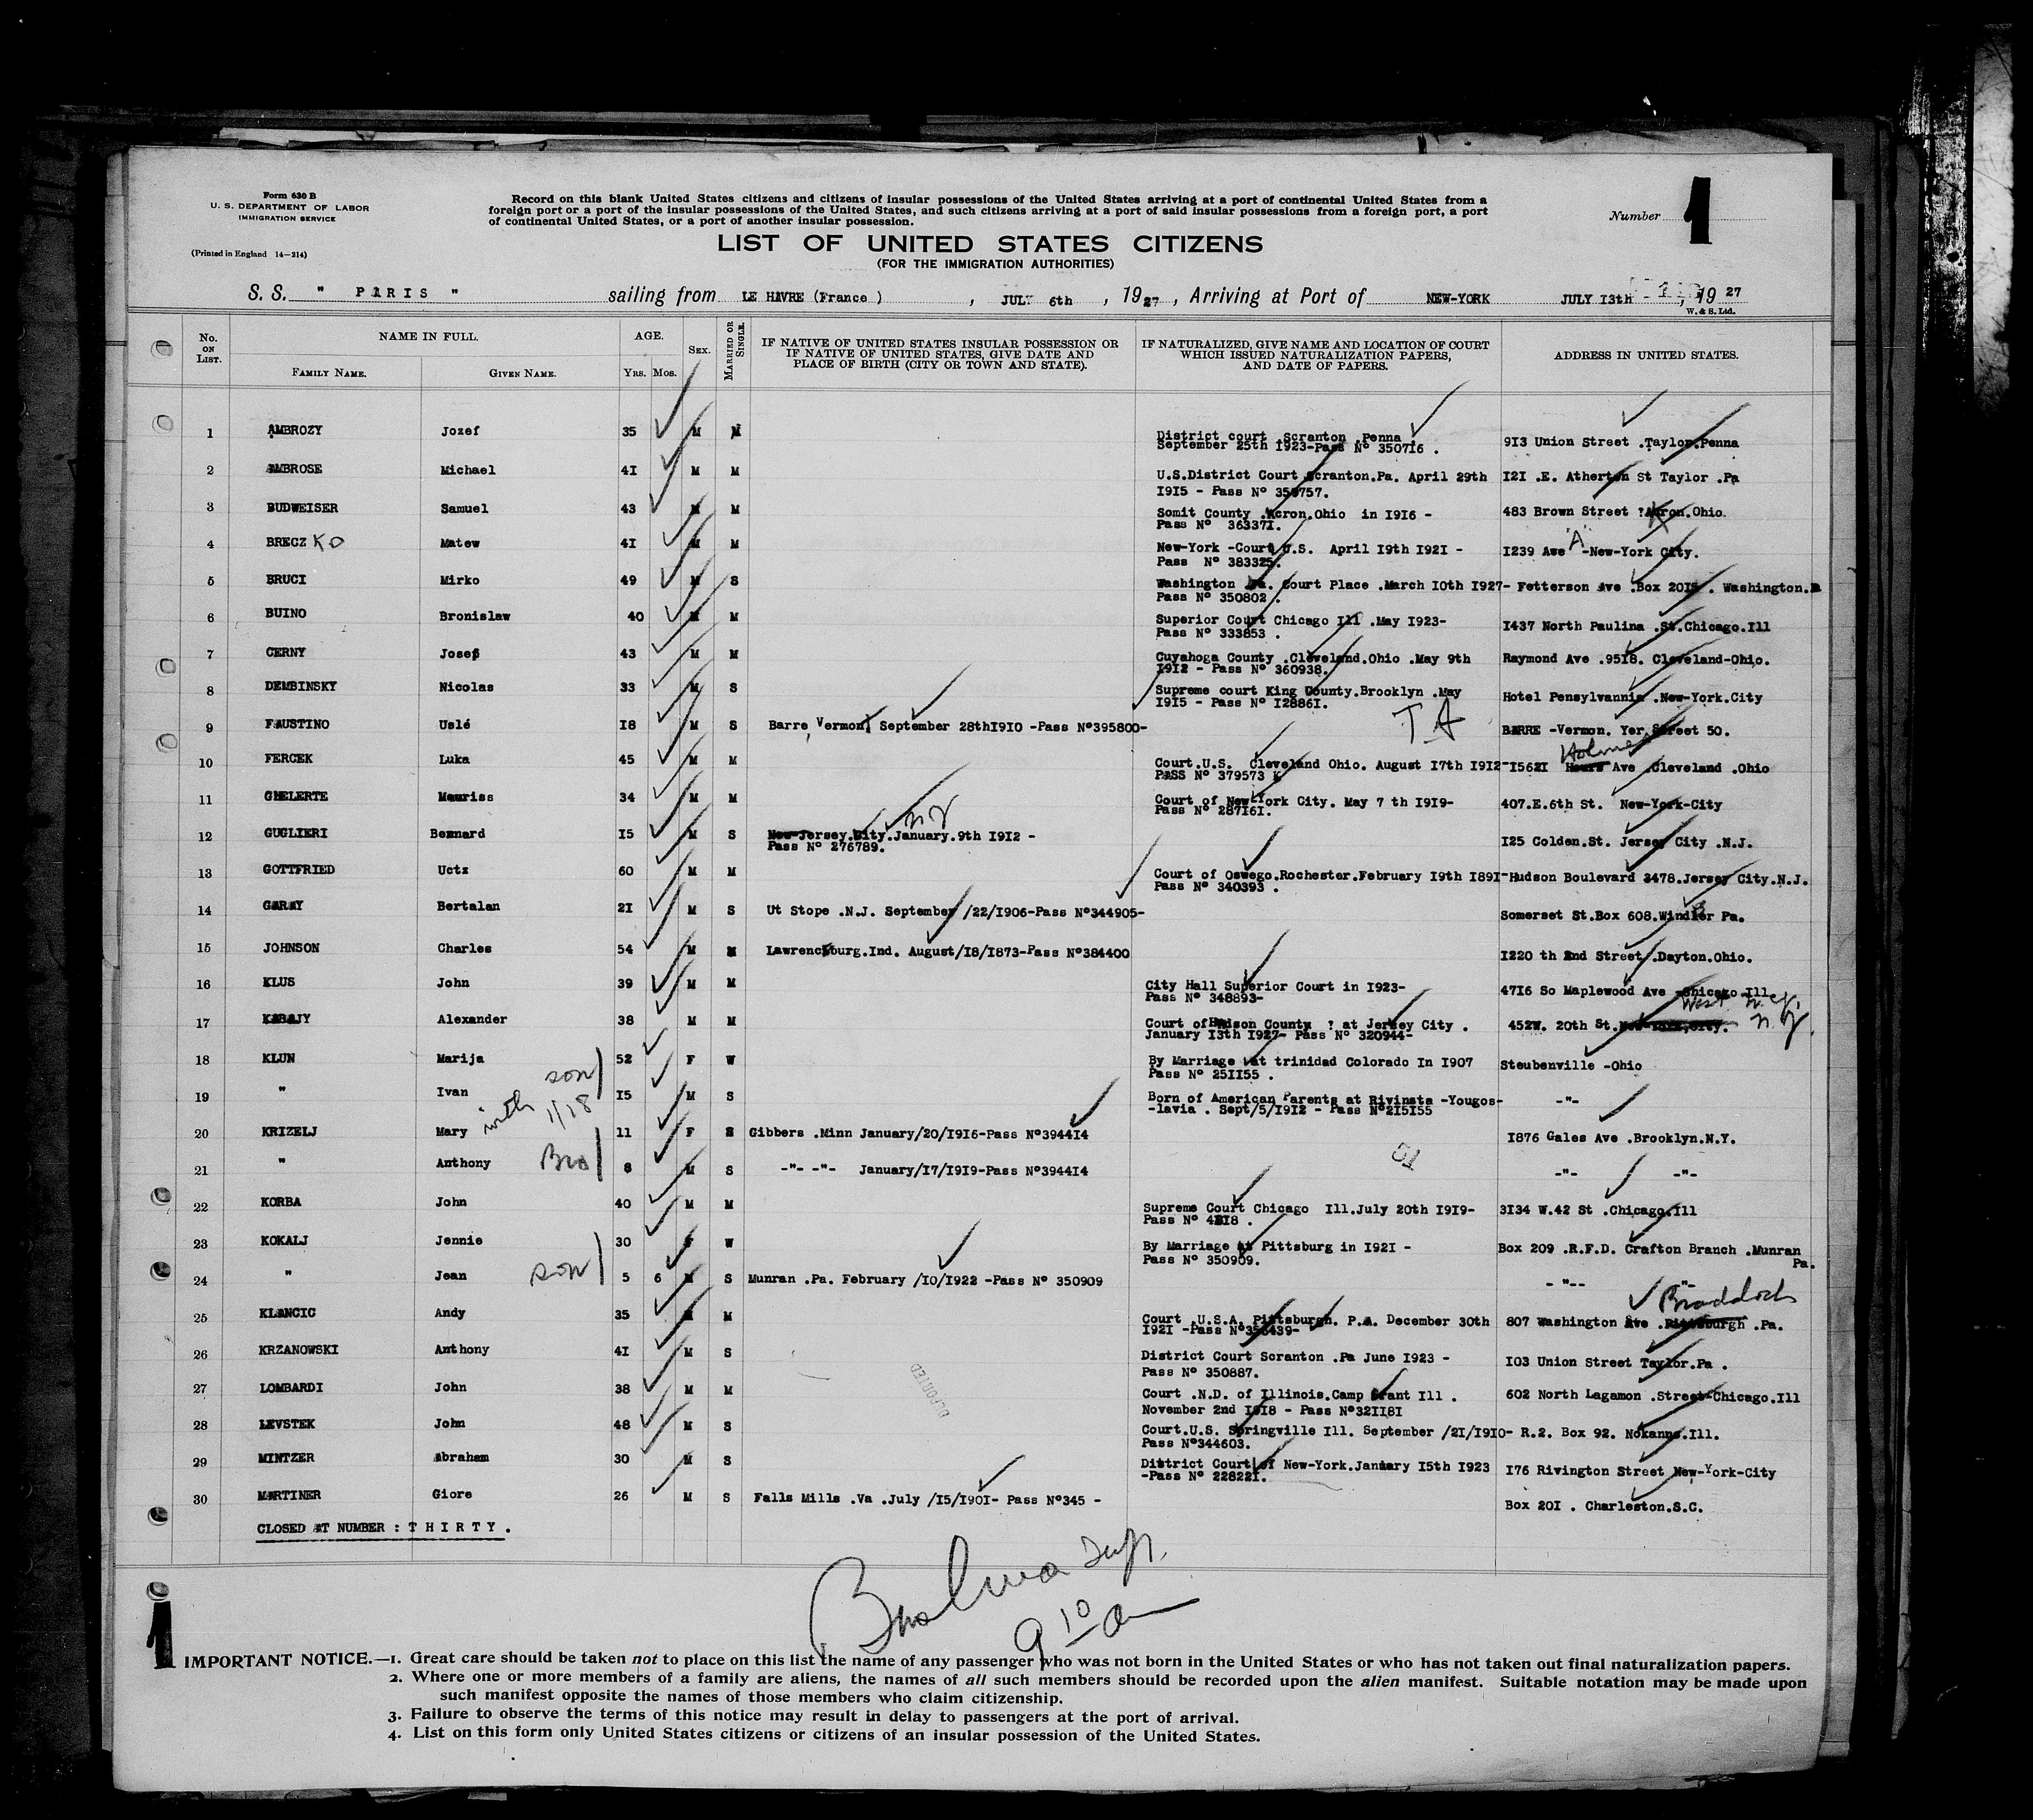 Form 630 B
U. S. DEPARTMENT OF LABOR
IMMIGRATION SERVICE
(Printed in England 14—214)
Record on this blank United States citizens and citizens of insular possessions of the United States arriving at a port of continental United States from a
foreign port or a port of the insular possessions of the United States, and such citizens arriving at a port of said insular possessions from a foreign port, a port
of continental United States, or a port of another insular possession.
Number 1
LIST OF UNITED STATES CITIZENS
(FOR THE IMMIGRATION AUTHORITIES)
S. S. " PARIS " sailing from LE HAVRE (France ) , JULY 6th , 1927 , Arriving at Port of NEW-YORK JULY I3th , 1927
W. & S. Ltd.
No. ON LIST. NAME IN FULL. FAMILY NAME. GIVEN NAME. AGE. YRS. MOS. SEX. MARRIED OR SINGLE. IF NATIVE OF UNITED STATES INSULAR POSSESSION OR IF NATIVE OF UNITED STATES, GIVE DATE AND PLACE OF BIRTH (CITY OR TOWN AND STATE). IF NATURALIZED, GIVE NAME AND LOCATION OF COURT WHICH ISSUED NATURALIZATION PAPERS, AND DATE OF PAPERS. ADDRESS IN UNITED STATES.
1 AMBROZY Jozef 35 M M District court Scranton Penna . 9I3 Union Street .Taylor.Penna
September 25th I923-Pass N° 3507I6 .
2 AMBROSE Michael 4I M M U.S.District Court Scranton.Pa. April 29th I2I .E. Atherton St Taylor .Pa
I9I5 - Pass N° 350757.
3 BUDWEISER Samuel 43 M M Somit County .Acron.Ohio in I9I6 - 483 Brown Street ?Akron.Ohio.
Pass N° 36337I.
4 BRECZKO Matew 4I M M New-York -Court U.S. April I9th I92I - I239 Ave "A" -New-York City.
Pass N° 383325.
5 BRUCI Mirko 49 M S Washington Pa. Court Place .March I0th I927- Fetterson Ave .Box 20I5 . Washington.
Pass N° 350802 .
6 BUINO Bronislaw 40 M M Superior Court Chicago Ill .May I923- I437 North Paulina .St.Chicago.Ill
Pass N° 333853 .
7 CERNY Josef 43 M M Cuyahoga County .Cleveland.Ohio .May 9th Raymond Ave .95I8. Cleveland-Ohio.
I9I2 - Pass N° 360938.
8 DEMBINSKY Nicolas 33 M S Supreme court King County.Brooklyn .May Hotel Pensylvannia .New-York.City
I9I5 - Pass N° I2886I.
9 FAUSTINO Uslé I8 M S Barre, Vermont September 28thI9I0 -Pass N°395800- T A BARRE -Vermon. Yer Street 50.
10 FERCEK Luka 45 M M Court.U.S. Cleveland Ohio. August I7th I9I2-I562I Holmes Ave .Cleveland .Ohio
PASS N° 379573
11 GHELERTE Mauriss 34 M M Court of New-York City. May 7 th I9I9- 407.E.6th St. New-York-City
Pass N° 287I6I.
12 GUGLIERI Bernard I5 M S New-Jersey.City.January.9th I9I2 - N J I25 Colden.St. Jersey City .N.J.
Pass N° 276789.
13 GOTTFRIED Uctz 60 M M Court of Oswego.Rochester.February I9th I89I-Hudson Boulevard 3478.Jersey City.N.J.
Pass N° 340393 .
14 GARAY Bertalan 2I M S Ut Stope .N.J. September /22/I906-Pass N°344905- Somerset St.Box 608.Windber Pa.
15 JOHNSON Charles 54 M M Lawrenceburg.Ind. August/I8/I873-Pass N°384400 I220 th 2nd Street .Dayton.Ohio.
16 KLUS John 39 M M City Hall Superior Court in I923- 47I6 So Maplewood Ave -Chicago Ill
Pass N° 348893-
17 KABAJY Alexander 38 M M Court of Hudson County ? at Jersey City . 452W. 20th St.New-York,City. West N.Y. N.J.
January I3th I927- Pass N° 320944-
18 KLUN Marija 52 F W By Marriage at trinidad Colorado In I907 Steubenville -Ohio
Pass N° 25II55 .
19 " Ivan son with 1/18 I5 M S Born of American Parents at Rivinsta -Yougos- -"-
-lavia . Sept/5/I9I2 - Pass N°2I5I55
20 KRIZELJ Mary 11 F S Gibbers .Minn January/20/I9I6-Pass N°3944I4 I876 Gales Ave .Brooklyn.N.Y.
21 " Anthony Bro 8 M S -"- -"- January/I7/I9I9-Pass N°3944I4 -"- -"-
22 KORBA John 40 M M Supreme Court Chicago Ill.July 20th I9I9- 3I34 W.42 St .Chicago.Ill
23 KOKALJ Jennie 30 F W By Marriage at Pittsburg in I92I - Box 209 .R.F.D. Crafton Branch .Munran Pa.
Pass N° 350909.
24 " Jean son 5 6 M S Munran .Pa. February /I0/I922 -Pass N° 350909 - "-- "-
25 KLANCIC Andy 35 M M Court .U.S.A. Pittsburgh. P.A. December 30th 807 Washington Ave .Pittsburgh .Pa. Braddock
I92I -Pass N°356439-
26 KRZANOWSKI Anthony 4I M S District Court Scranton .Pa June I923 - I03 Union Street Taylor.Pa .
Pass N° 350887.
27 LOMBARDI John 38 M M Court .N.D. of Illinois.Camp Grant Ill . 602 North Lagamon .Street-Chicago.Ill
November 2nd I9I8 - Pass N°32II8I
28 LEVSTEK John 48 M S Court.U.S. Springville Ill. September /2I/I9I0- R.2. Box 92. Nokanns.Ill.
Pass N°344603.
29 MINTZER Abraham 30 M S District Court of New-York.January I5th I923 I76 Rivington Street New-York-City
-Pass N° 22822I.
30 MARTINER Giore 26 M S Falls Mills .Va .July /I5/I90I- Pass N°345 - Box 20I . Charleston.S.C.
DEPORTED
CLOSED AT NUMBER : T H I R T Y .
9 10 am
1
IMPORTANT NOTICE.—1. Great care should be taken not to place on this list the name of any passenger who was not born in the United States or who has not taken out final naturalization papers.
2. Where one or more members of a family are aliens, the names of all such members should be recorded upon the alien manifest. Suitable notation may be made upon
such manifest opposite the names of those members who claim citizenship.
3. Failure to observe the terms of this notice may result in delay to passengers at the port of arrival.
4. List on this form only United States citizens or citizens of an insular possession of the United States.